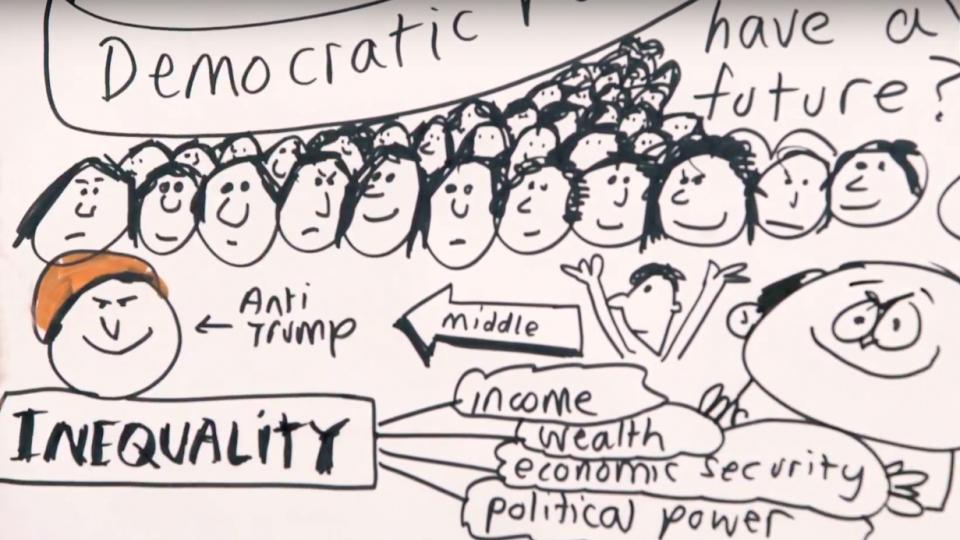 Democratic
have a
future?
Anti
Trump
middle
INEQUALITY
income
wealth
economic security
political power